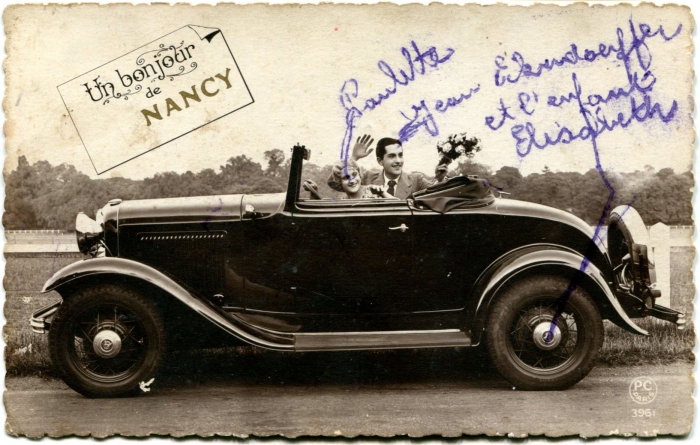 Un bonjour
de
NANCY
Paulette
Jean Eikendoerffer
et l'enfant
Elisabeth
PC
PARIS
3961